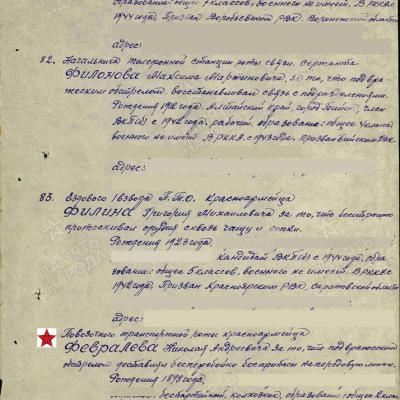 образование: общее 7 классов, военного не имеет. В РККА с
1944 года. Призван Воробьевским РВК. Воронежской области
адрес:
82. Начальника телефонной станции роты связи. Сержанта
Филонова Максима Мартыновича, за то, что под вра-
жеским обстрелом, восстанавливал связь с подразделениями.
Рождения 1912 года. Алтайский край, город Бийск, член
ВКП(б) с 1942 года, рабочий, образование: общее 4 класса
военного не имеет. В РККА с 1943 года. Призван Бийским РВК.
адрес:
83. Ездового 1 взвода П.Т.О. Красноармейца
Филина Григория Михайловича за то, что бесстрашно
протаскивал орудия сквозь чащу и сопки.
Рождения 1923 года.
Кандидат ВКП(б) с 1944 года, обра
зование: общее 5 классов, военного не имеет. В РККА с
1942 года. Призван Красноярским РВК, Саратовской области
адрес:
Повозочного транспортной роты красноармейца
Февралева Николая Андреевича за то, что под вражеским
обстрелом доставлял бесперебойно боеприпасы на передовую линию.
Рождения 1898 года.
беспартийный, колхозник, образование: общее 2 класс